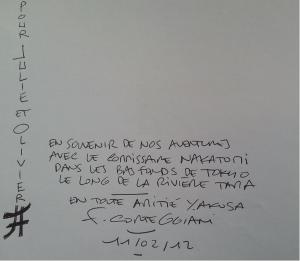 POUR JULIE ET OLIVIER
#
EN SOUVENIR DE NOS AVENTURES
AVEC LE COMMISSAIRE NAKATOMI
DANS LES BAS FONDS DE TOKYO
LE LONG DE LA RIVIERE TAMA
EN TOUTE AMITIÉ YAKUSA
F. CORTEGGIANI
11/02/12